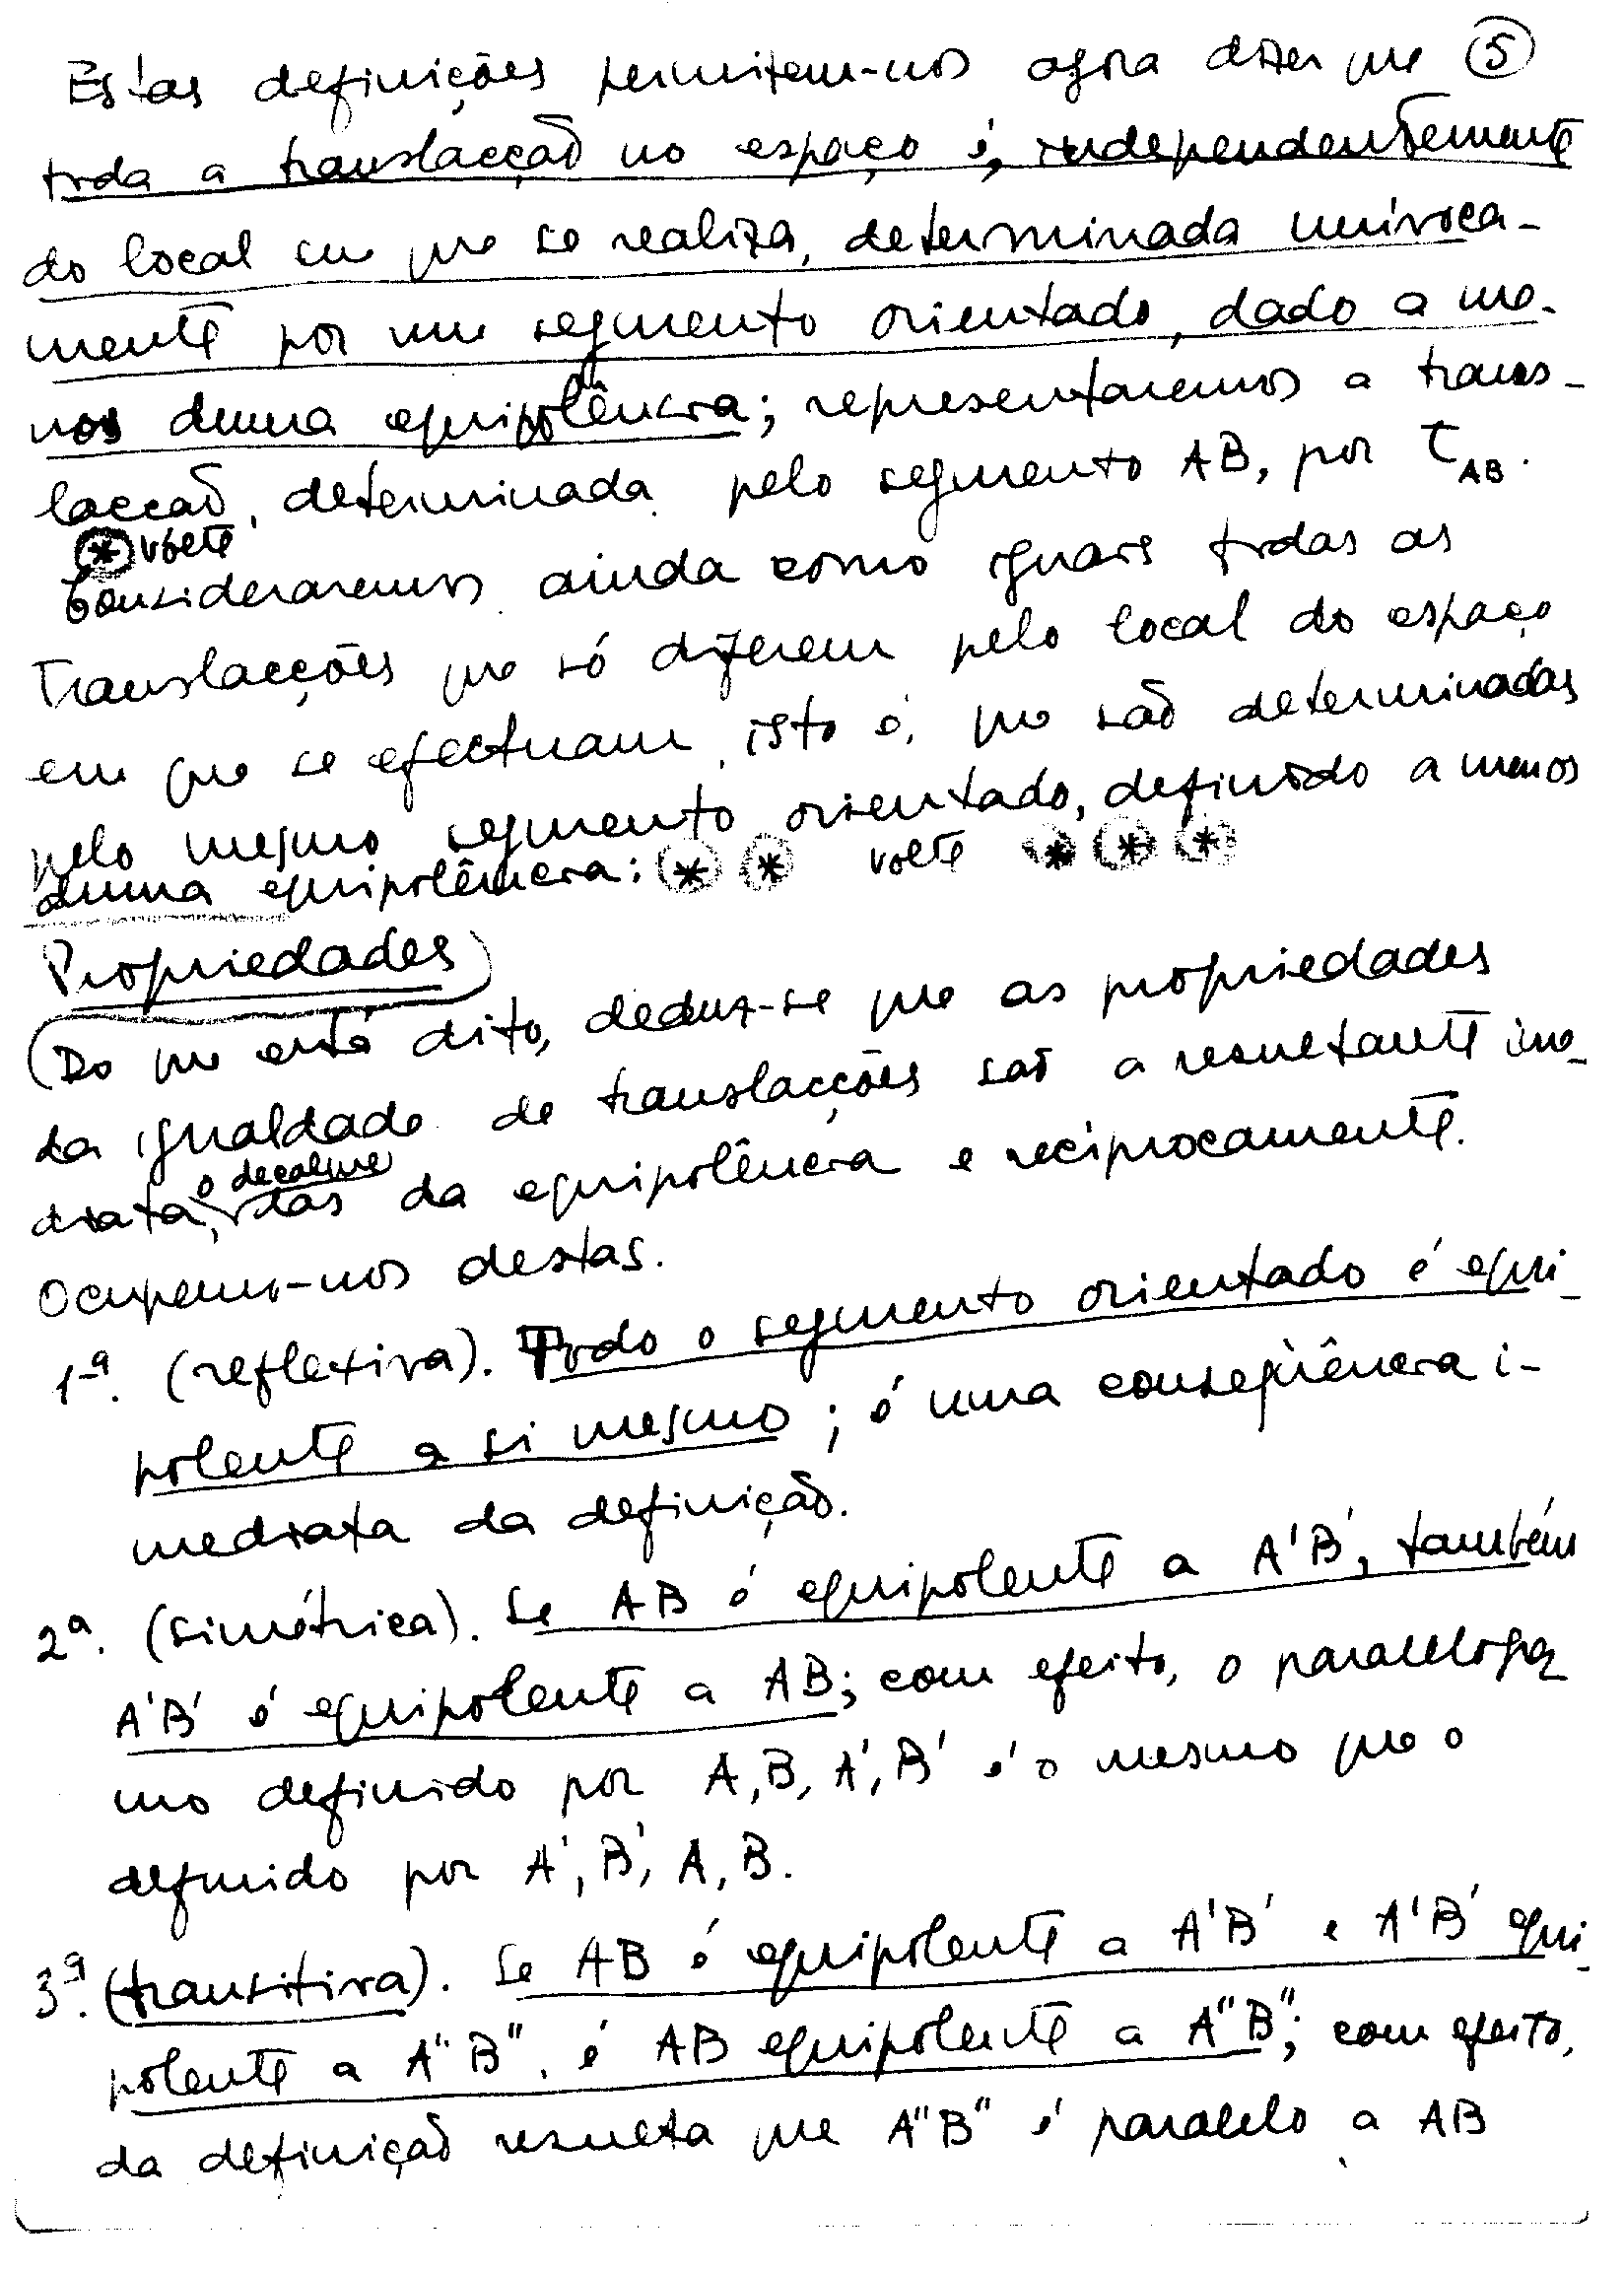 Estas definições permitem-nos agora dizer que ⑤
toda a translacção no espaço é, independentemente
do local em que se realiza, determinada univoca-
mente por um segmento orientado, dado a me-
nos duma equipolência; representaremos a trans-
lacção, determinada pelo segmento AB, por τ_AB.
* volte
Consideraremos ainda como iguais todas as
Translacções que só diferem pelo local do espaço
em que se efectuam, isto é, que são determinadas
pelo mesmo segmento orientado, definido a menos
duma equipolência: * * volte * * *
Propriedades
(Do que está dito, deduz-se que as propriedades
da igualdade de translacções são a resultante ime-
o decalque
diata, das da equipolência e reciprocamente.
Ocupemo-nos destas.
1ª. (reflexiva). Todo o segmento orientado é equi-
polente a si mesmo; é uma conseqüência i-
mediata da definição.
2ª. (simétrica). Se AB é equipolente a A'B', também
A'B' é equipolente a AB; com efeito, o paralelogra
mo definido por A, B, A', B' é o mesmo que o
definido por A', B', A, B.
3ª. (transitiva). Se AB é equipolente a A'B' e A'B' equi-
polente a A"B", é AB equipolente a A"B"; com efeito,
da definição resulta que A"B" é paralelo a AB